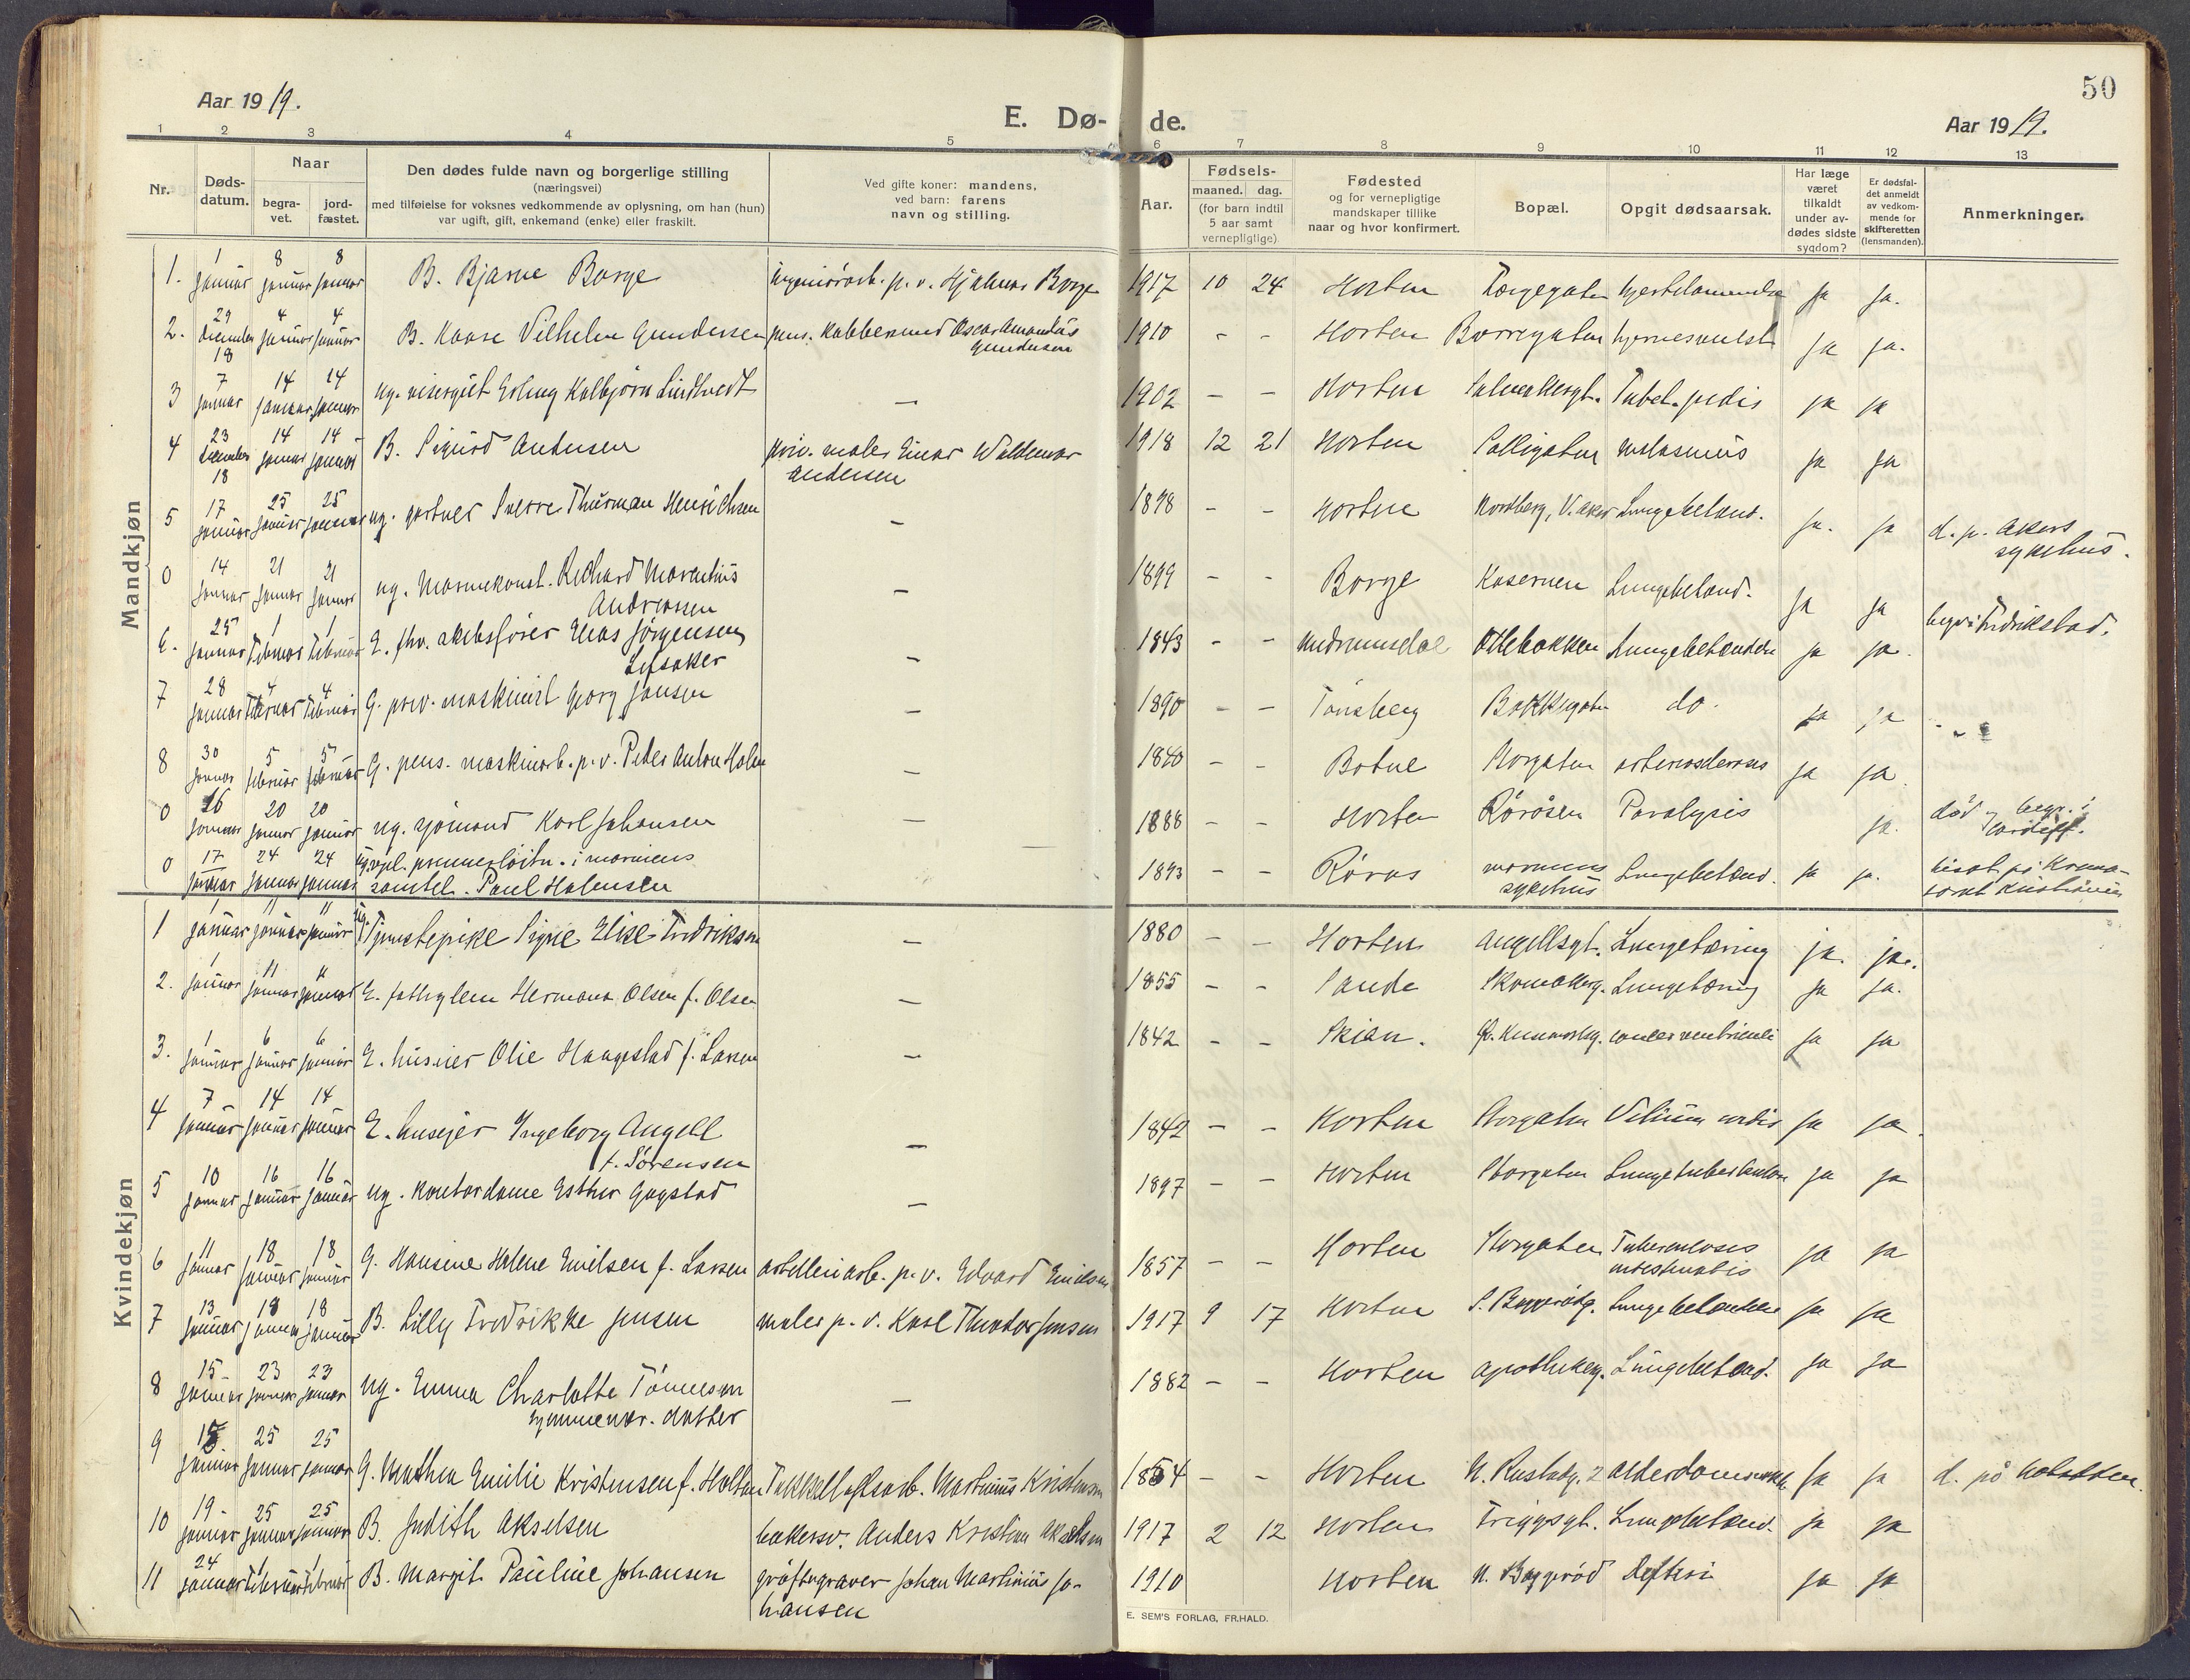 50
Aar 1919.
E. Dø-
de.
Aar 1919.
1 2 3 4 5 6 7 8 9 10 11 12 13
Nr.
Døds-
datum.
Naar
begra-
vet.
jord-
fæstet.
Den dødes fulde navn og borgerlige stilling
(næringsvei)
med tilføielse for voksnes vedkommende av oplysning, om han (hun)
var ugift, gift, enkemand (enke) eller fraskilt.
Ved gifte koner: mandens,
ved barn: farens
navn og stilling.
Aar.
Fødsels-
maaned. dag.
(for barn indtil
5 aar samt
vernepligtige)
Fødested
og for vernepligtige
mandskaper tillike
naar og hvor konfirmert.
Bopæl.
Opgit dødsaarsak.
Har læge
været
tilkaldt
under av-
dødes sidste
sygdom?
Er dødsfal-
det anmeldt
av vedkom-
mende for
skifteretten
(lensmanden).
Anmerkninger.
Mandkjøn
1. 1 januar 8 januar 8 januar B. Bjarne Borge p. v. Hjalmar Borge 1917 10 24 Horten Torgegaten ja ja.
2. 29 december 18 4 januar 4 januar B. Kaare Vilhelm Gundersen pens. Oscar Amandus Gundersen 1910 - - Horten Borregaten hjernesvulst ja ja.
3 7 januar 14 januar 14 januar ug. visergut Erling Kolbjørn Lindtvedt — 1902 - - Horten ja ja
4 23 december 18 14 januar 14 januar B. Sigurd Andersen priv. maler Einar Waldemar Andersen 1918 12 21 Horten Solligaten ja ja
5 17 januar 25 januar 25 januar ug. gartner Sverre Thurman Henrichsen — 1898 - - Horten Nordberg, V. Aker Lungebetænd. ja. ja d. p. Akers sykehus.
0 14 januar 21 januar 21 januar ug. Richard Marentius Andreassen — 1899 - - Borge Kasernen Lungebetænd. ja ja begr. i Fredrikstad.
6. 25 januar 1 februar 1 februar E. fhv. Elias Jørgensen Lefsaker — 1843 - - Ollebakken Lungebetændelse ja ja.
7 28 januar 4 februar 4 februar G. prov. maskinist Georg Jansen — 1890 - - Tønsberg Bakkegaten do. ja ja
8 30 januar 5 februar 5 februar G. pens. maskinarb. p. v. Peder Anton Holm — 1840 - - Botne Norgaten ja ja.
0 16 januar 20 januar 20 januar ug. sjømand Karl Johansen — 1888 - - Horten Rørøsen Paralysis ja. død og begr. i Cardiff.
0 17 januar 24 januar 24 januar premierløitn. i marinens Paul Holmsen 1893 - - Røros marinens sykehus Lungebetænd. ja ja.
Kvindekjøn
1 1 januar 11 januar 11 januar ug. Tjenestepike Signe Elise Fredriksen — 1880 - - Horten Angellsgt. Lungetæring ja. ja.
2. 1 januar 11 januar 11 januar E. fattiglem Hermana Olsen f. Olsen — 1855 - - Sande Skomakerg. Lungetæring ja ja.
3. 1 januar 6 januar 6 januar E. huseier Olie Haugestad f. Larsen — 1842 - - Skien. cancer ventriculi ja ja
4 7 januar 14 januar 14 januar E. huseier Ingeborg Angell f. Sørensen — 1842 - - Horten Storgaten Vitium cordis ja ja.
5 10 januar 16 januar 16 januar ug. kontordame Esther Gogstad — 1897 - - Horten Storgaten Lungetuberkulose ja ja
6 11 januar 18 januar 18 januar G. Hansine Helene Emilsen f. Larsen artilleriarb. p. v. Edvard Emilsen 1857 - - Horten Storgaten Tuberculosis intestinalis ja ja
7 13 januar 18 januar 18 januar B. Lilly Fredrikke Jensen maler p. v. Karl Theodor Jensen 1917 9 17 Horten Lungebetændelse ja ja
8 15 januar 23 januar 23 januar ug. Emma Charlotte Tønnesen tømmermr. datter — 1882 - - Horten Apothekerg. Lungebetænd. ja ja
9 15 januar 25 januar 25 januar G. Mathea Emilie Kristensen f. Holtan Takkelloftsarb. Martinius Kristensen 1854 - - Horten N. Rustadg. 2 ja ja
10 19 januar 25 januar 25 januar B. Judith Akselsen bakersv. Anders Kristian Akselsen 1917 2 12 Horten Tryggsgt. Lungebetænd. ja ja
11 24 januar 1 februar 1 februar B. Margit Pauline Johansen grøftegraver Johan Martinius Johansen 1910 Horten N. Baggerød Difteri ja ja
E. SEM'S FORLAG, FR.HALD.